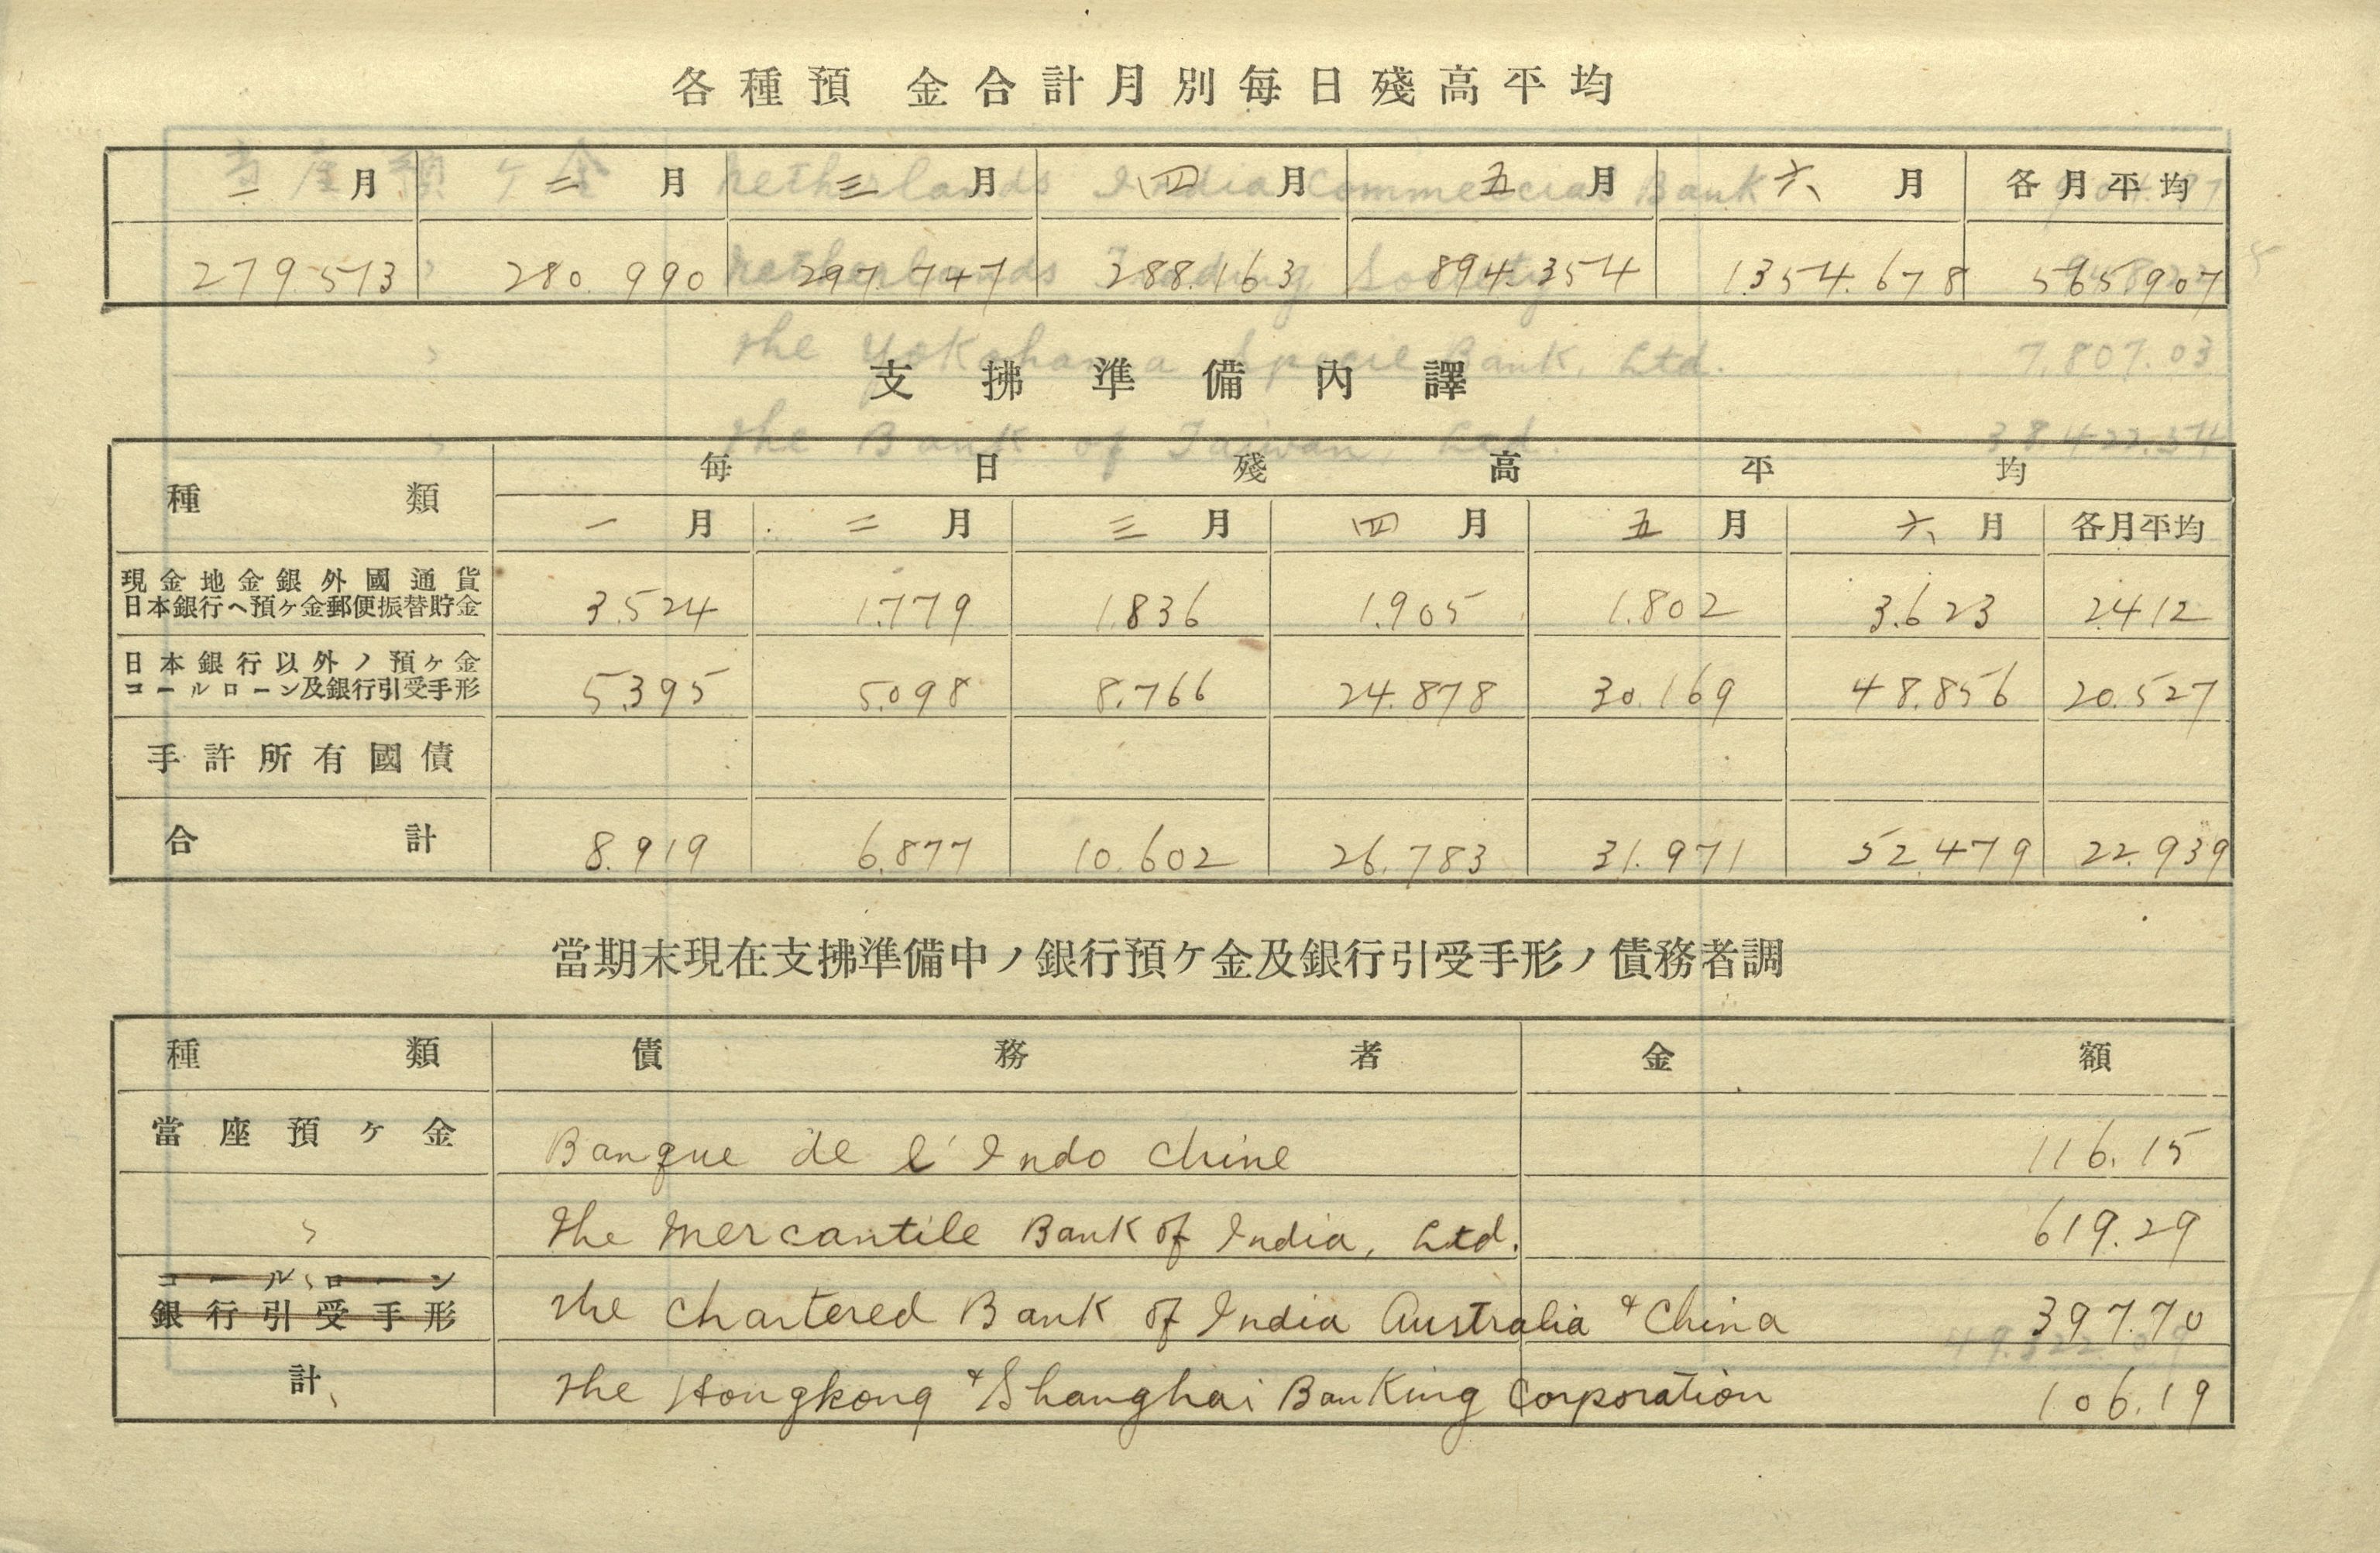 各種預金合計月別每日殘高平均
一月 二月 三月 四月 五月 六月 各月平均
279.573 280.990 297.747 288.163 894.354 1.354.678 565.907
支拂準備內譯
種類 每日殘高平均
一月 二月 三月 四月 五月 六月 各月平均
現金地金銀外國通貨
日本銀行へ預ヶ金郵便振替貯金 3.524 1.779 1.836 1.905 1.802 3.623 2.412
日本銀行以外ノ預ヶ金
コールローン及銀行引受手形 5.395 5.098 8.766 24.878 30.169 48.856 20.527
手許所有國債
合計 8.919 6.877 10.602 26.783 31.971 52.479 22.939
當期末現在支拂準備中ノ銀行預ケ金及銀行引受手形ノ債務者調
種類 債務者 金額
當座預ヶ金 Banque de l'Indo Chine 116.15
〃 The Mercantile Bank of India, Ltd. 619.29
コールローン
銀行引受手形 The Chartered Bank of India Australia & China 397.70
計 The Hongkong & Shanghai Banking Corporation 106.19
當座預ヶ金 Netherlands India Commercial Bank
Netherlands Trading Society
The Yokohama Specie Bank, Ltd. 7,807.03
The Bank of Taiwan, Ltd.